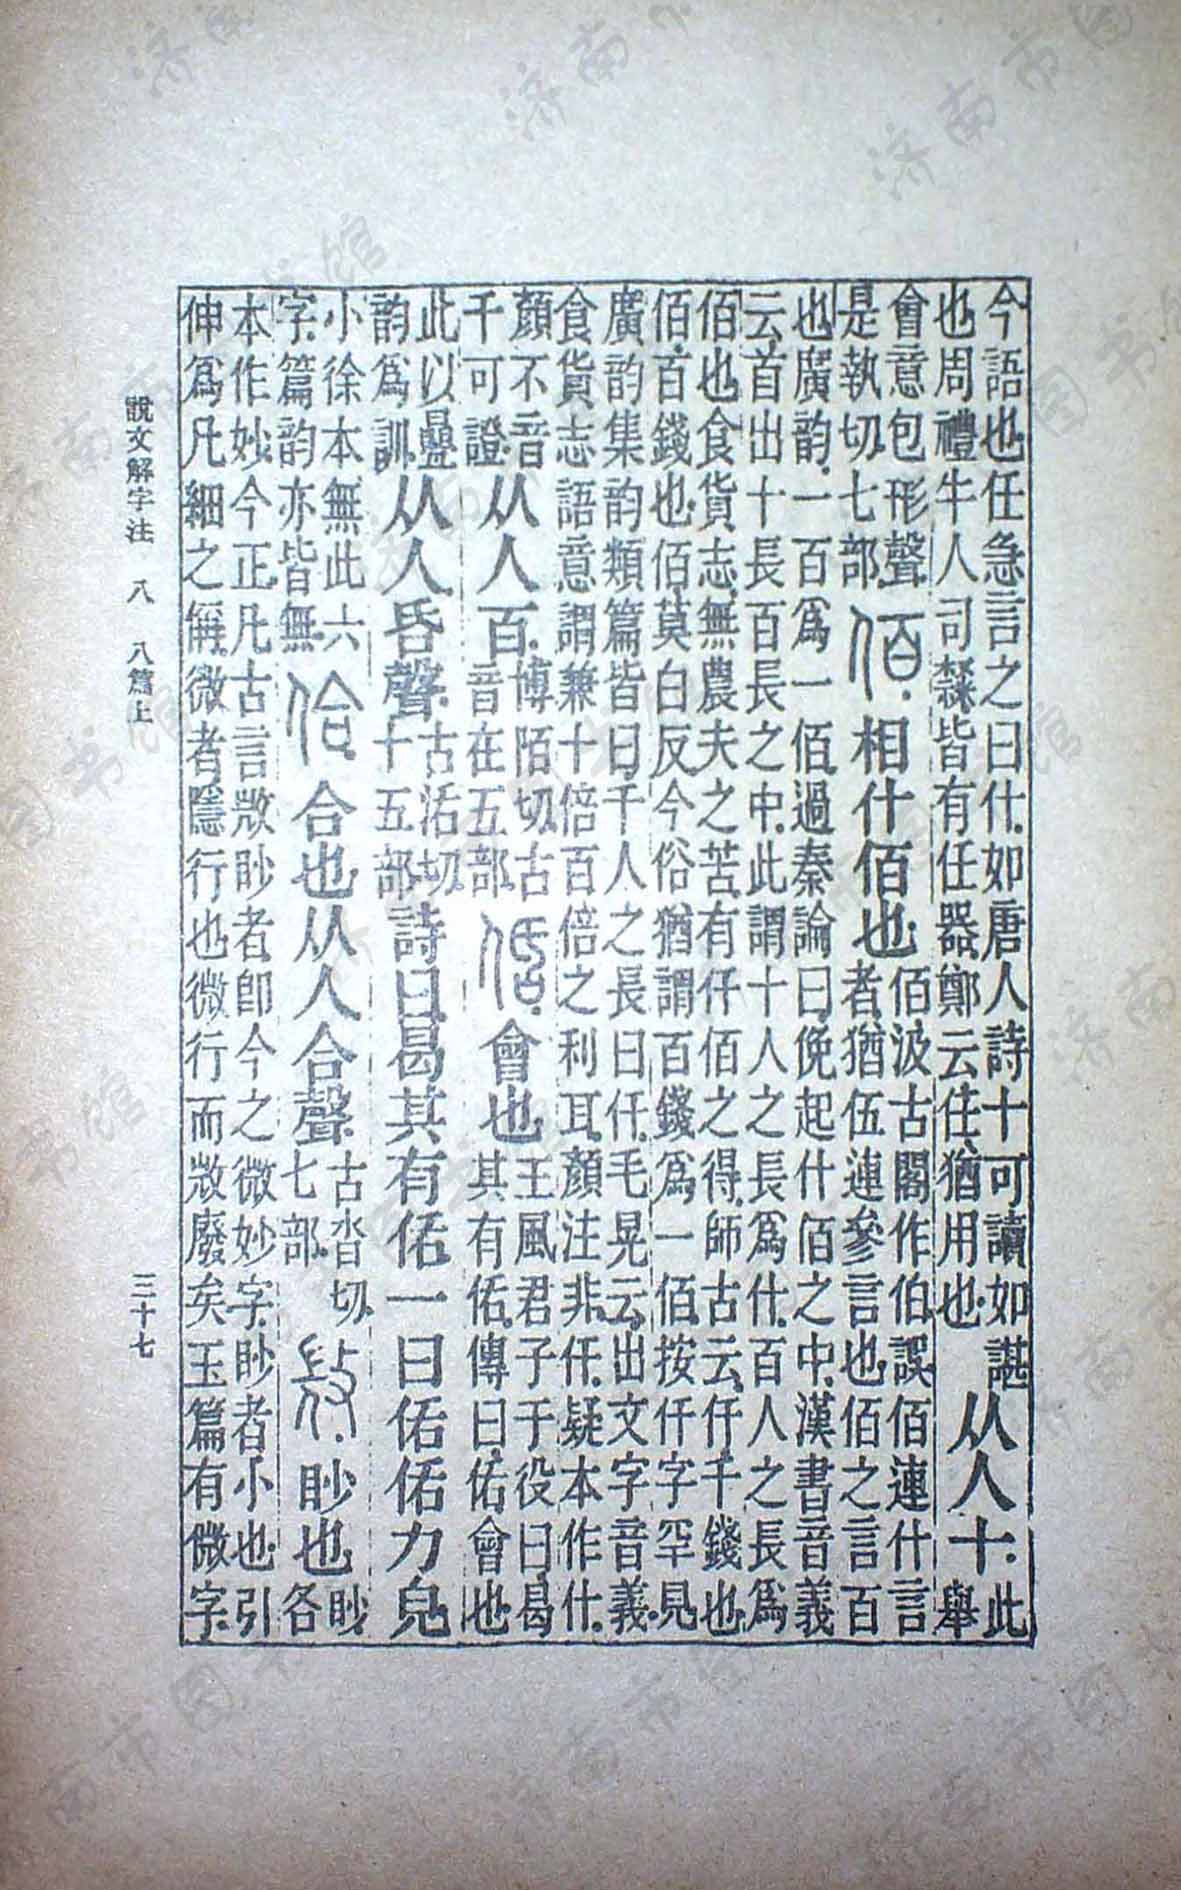 今語也任急言之曰什如唐人詩十可讀如諶
也周禮牛人司隸皆有任器鄭云任猶用也
从人十
此
舉
會意包形聲
是執切七部
佰相什佰也
佰汲古閣作伯誤佰連什言
者猶伍連參言也佰之言百
也廣韵一百爲一佰過秦論曰俛起什佰之中漢書音義
云首出十長百長之中此謂十人之長爲什百人之長爲
佰也食貨志無農夫之苦有仟佰之得師古云仟千錢也
佰百錢也佰莫白反今俗猶謂百錢爲一佰按仟字罕見
廣韵集韵類篇皆曰千人之長曰仟毛晃云出文字音義
食貨志語意謂兼十倍百倍之利耳顏注非仟疑本作什
顏不音
千可證
从人百
博陌切古
音在五部
佸會也
王風君子于役曰曷
其有佸傳曰佸會也
此以疊
韵爲訓
从人昏聲
古活切
十五部
詩曰曷其有佸一曰佸佸力皃
小徐本無此六
字篇韵亦皆無
佮合也从人合聲
古沓切
七部
眇也
眇
各
本作妙今正凡古言敚眇者卽今之微妙字眇者小也引
伸爲凡細之偁微者隱行也微行而敚廢矣玉篇有㣲字
說文解字注 八 八篇上
三十七
济南市图书馆